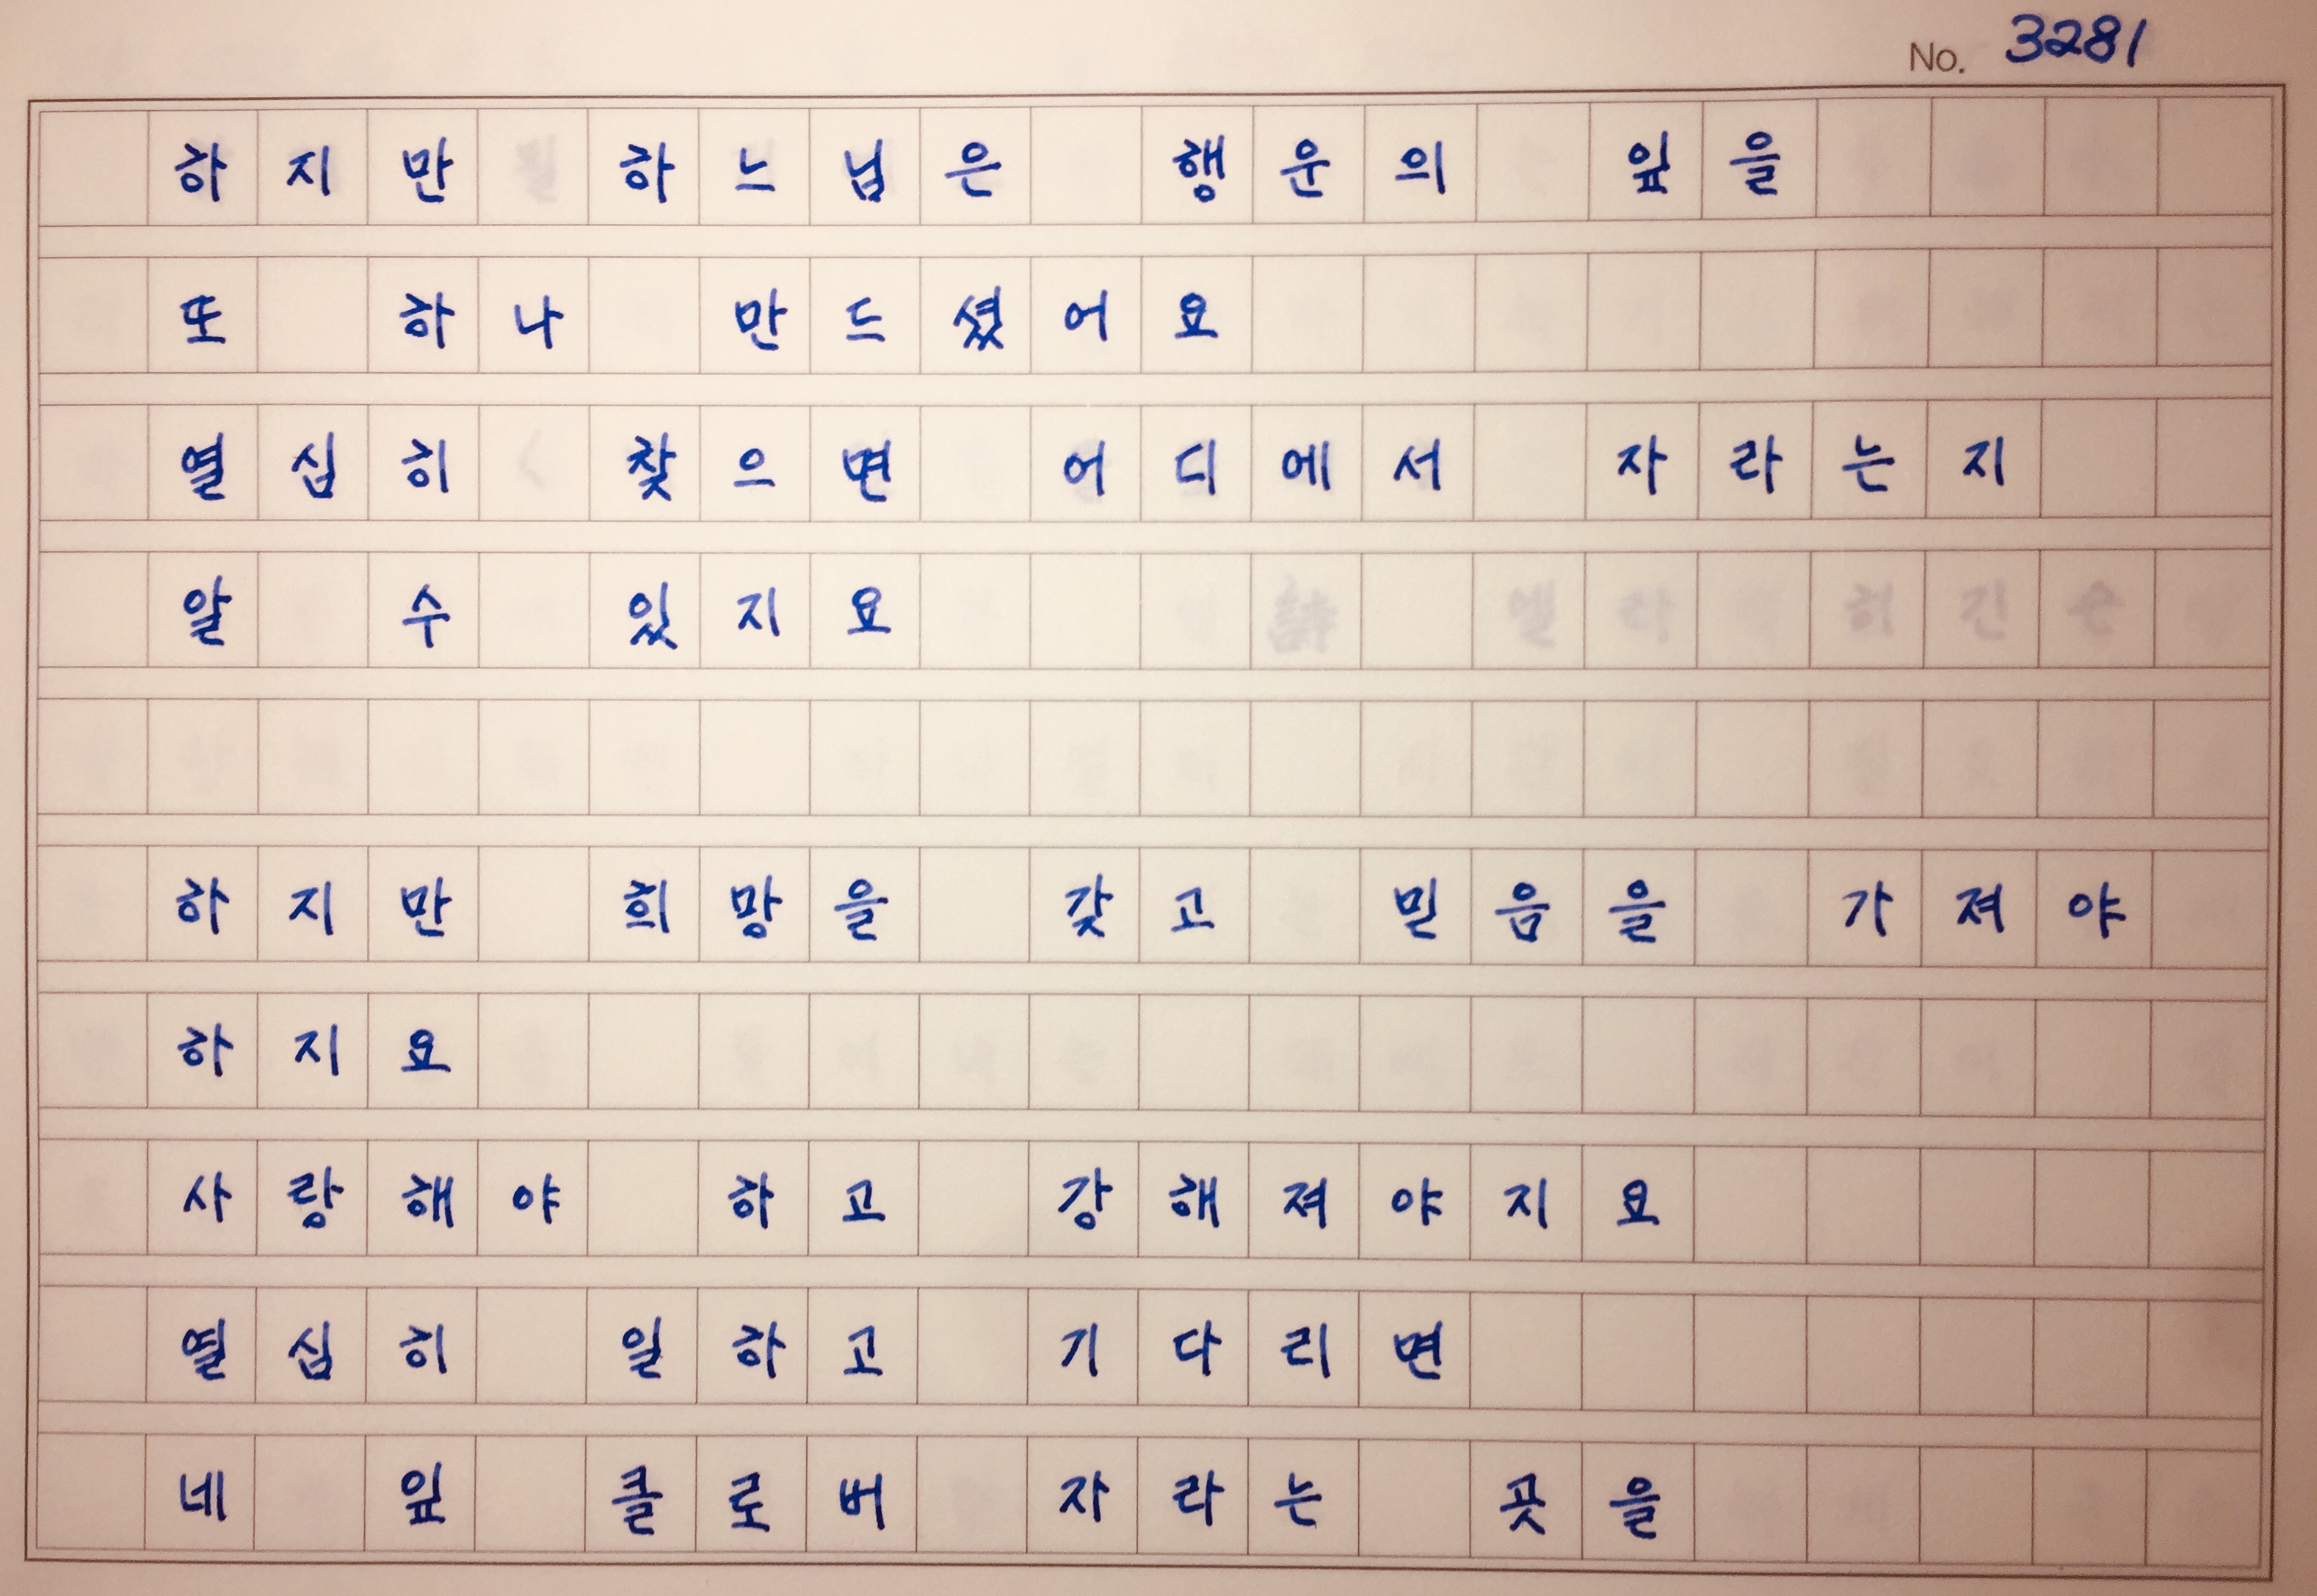 No. 3281
하지만 하느님은 행운의 잎을
또 하나 만드셨어요
열심히 찾으면 어디에서 자라는지
알 수 있지요
하지만 희망을 갖고 믿음을 가져야
하지요
사랑해야 하고 강해져야지요
열심히 일하고 기다리면
네 잎 클로버 자라는 곳을